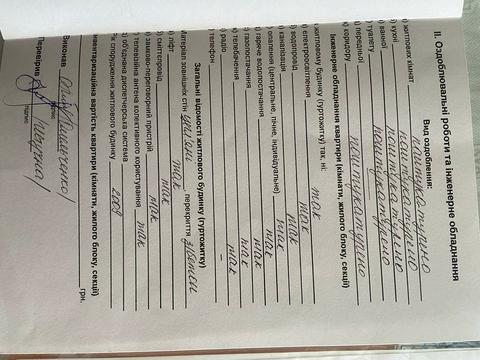 II. Оздоблювальні роботи та інженерне обладнання
Вид оздоблення:
житлових кімнат поштукатурено
кухні поштукатурено
ванної поштукатурено
туалету поштукатурено
передньої
коридору поштукатурено
Інженерне обладнання квартири (кімнати, жилого блоку, секції)
житловому будинку (гуртожитку) так, ні:
електроосвітлення так
водопровід так
каналізація так
опалення (центральне, пічне, індивідуальне) так
гаряче водопостачання так
газопостачання так
телебачення так
радіо так
телефон –
Загальні відомості житлового будинку (гуртожитку)
Матеріал зовнішніх стін перекриття
ліфт так
сміттєпровід так
замково-переговорний пристрій так
телевізійна антена колективного користування так
об'єднана диспетчерська система
Рік спорудження житлового будинку 2008
Інвентаризаційна вартість квартири (кімнати, жилого блоку, секції)
грн.
Виконав
підпис
Перевірив
підпис